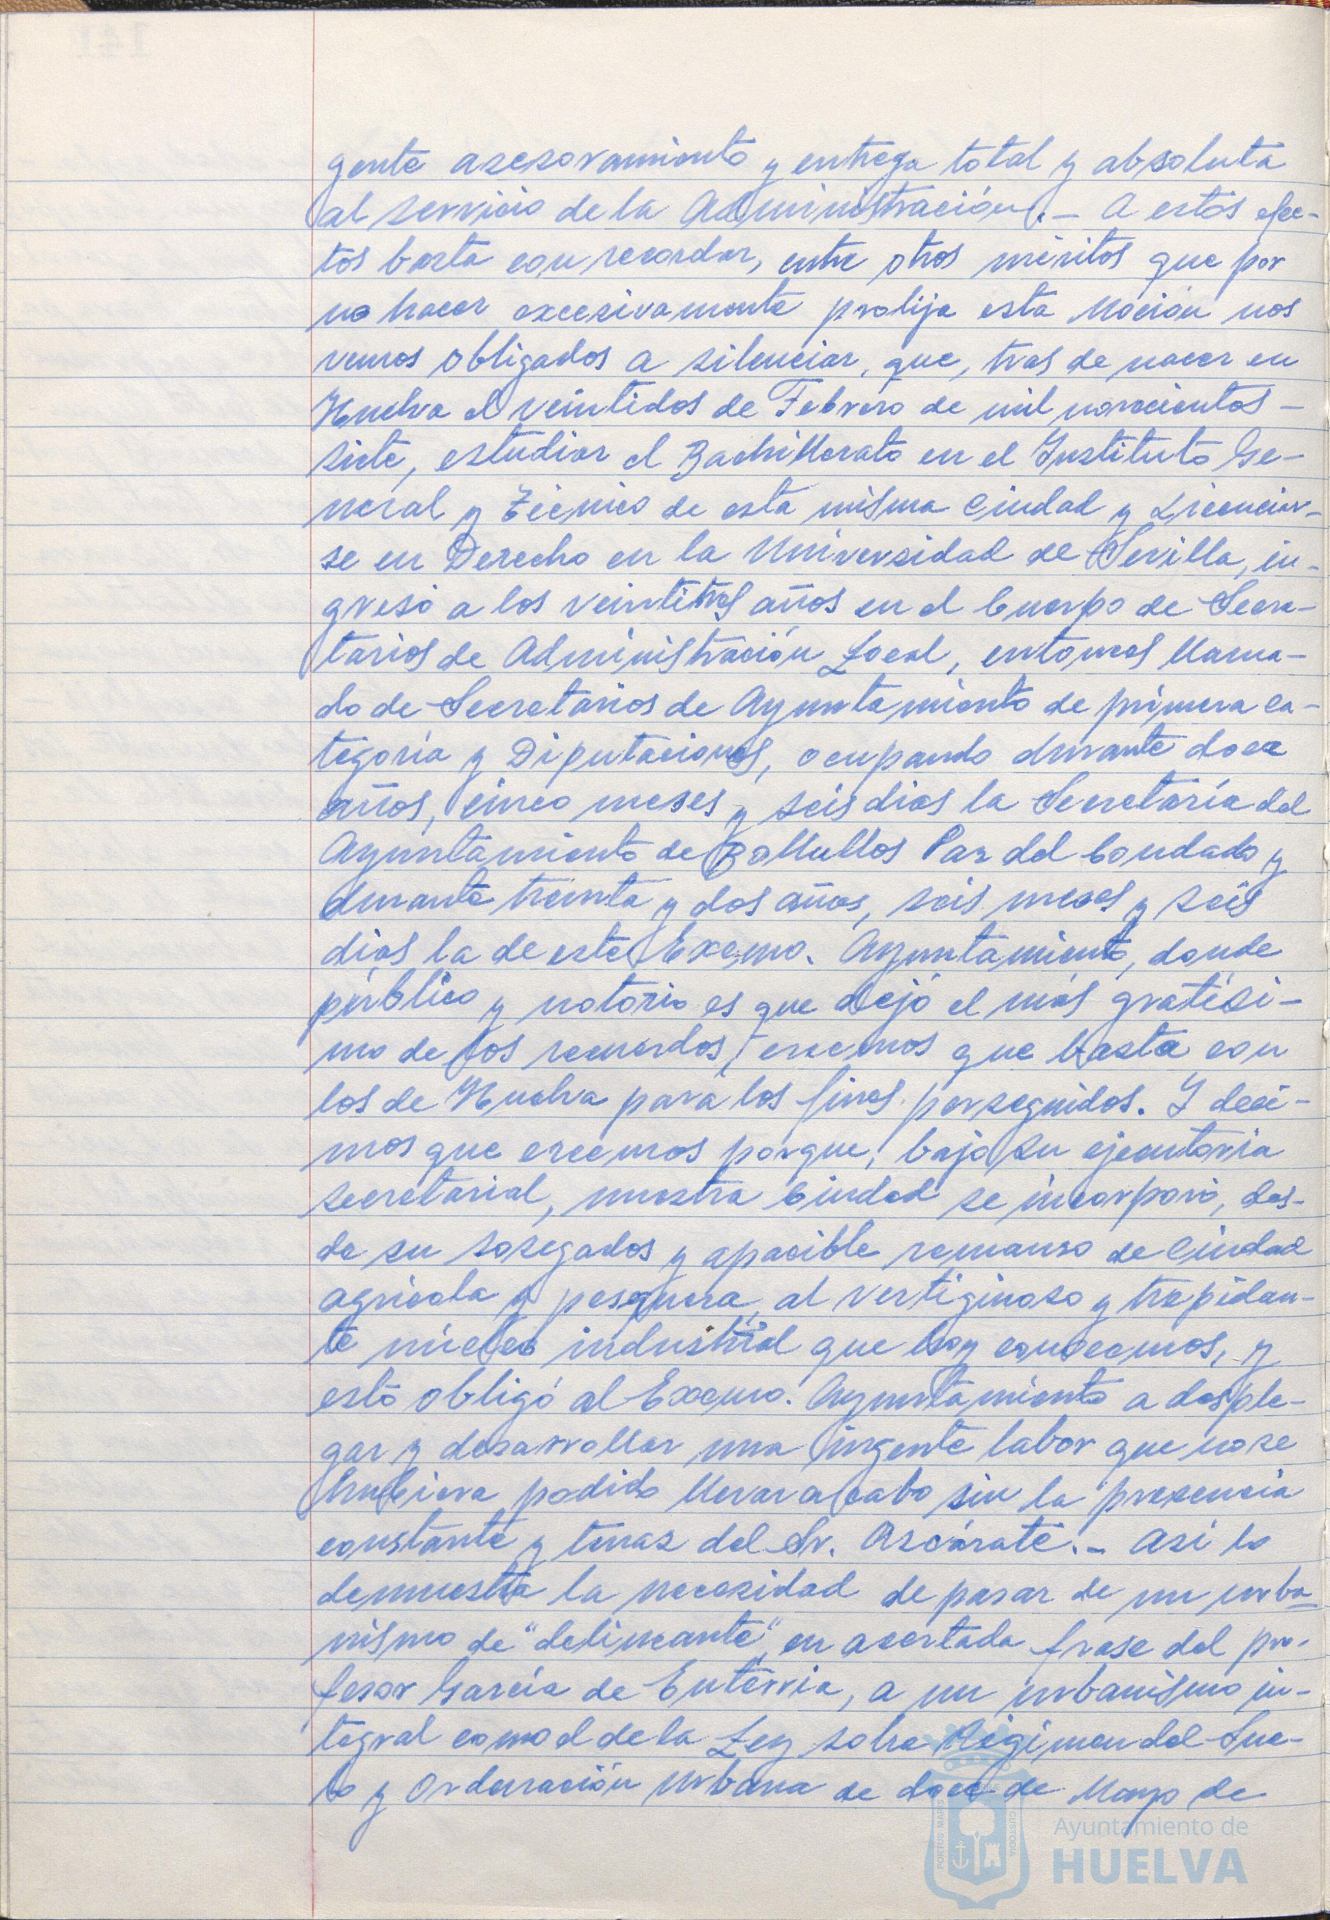 gente asesoramiento y entrega total y absoluta
al servicio de la Administración.- A estos efec-
tos basta con recordar, entre otros méritos que por
no hacer excesivamente prolija esta Moción nos
vemos obligados a silenciar, que, tras de nacer en
Huelva el veintidos de Febrero de mil novecientos -
siete, estudiar el Bachillerato en el Instituto Ge-
neral y Técnico de esta misma Ciudad y Licenciar-
se en Derecho en la Universidad de Sevilla, in-
gresó a los veintitres años en el Cuerpo de Secre-
tarios de Administración Local, entonces llama-
do de Secretarios de Ayuntamiento de primera ca-
tegoría y Diputaciones, ocupando durante doce
años, cinco meses y seis dias la Secretaría del
Ayuntamiento de Bollullos Par del Condado y
durante treinta y dos años, seis meses y seis
dias la de este Excmo. Ayuntamiento, donde
público y notorio es que dejó el más gratísi-
mo de los recuerdos, creemos que basta con
los de Huelva para los fines perseguidos. Y deci-
mos que creemos porque, bajo su ejecutoria
secretarial, nuestra Ciudad se incorporó, des-
de su sosegados y apacible remanso de Ciudad
agrícola y pesquera, al vertiginoso y trepidan-
te núcleo industrial que hoy conocemos, y
esto obligó al Excmo. Ayuntamiento a desple-
gar y desarrollar una ingente labor que no se
hubiera podido llevar a cabo sin la presencia
constante y tenaz del Sr. Azcárate.- Así lo
demuestra la necesidad de pasar de un urba-
nismo de "delineante", en acertada frase del pro-
fesor García de Enterría, a un urbanismo in-
tegral como el de la Ley sobre Régimen del Sue-
lo y Ordenación Urbana de doce de Mayo de
PORTUS MARIS
CUSTODIA
Ayuntamiento de
HUELVA